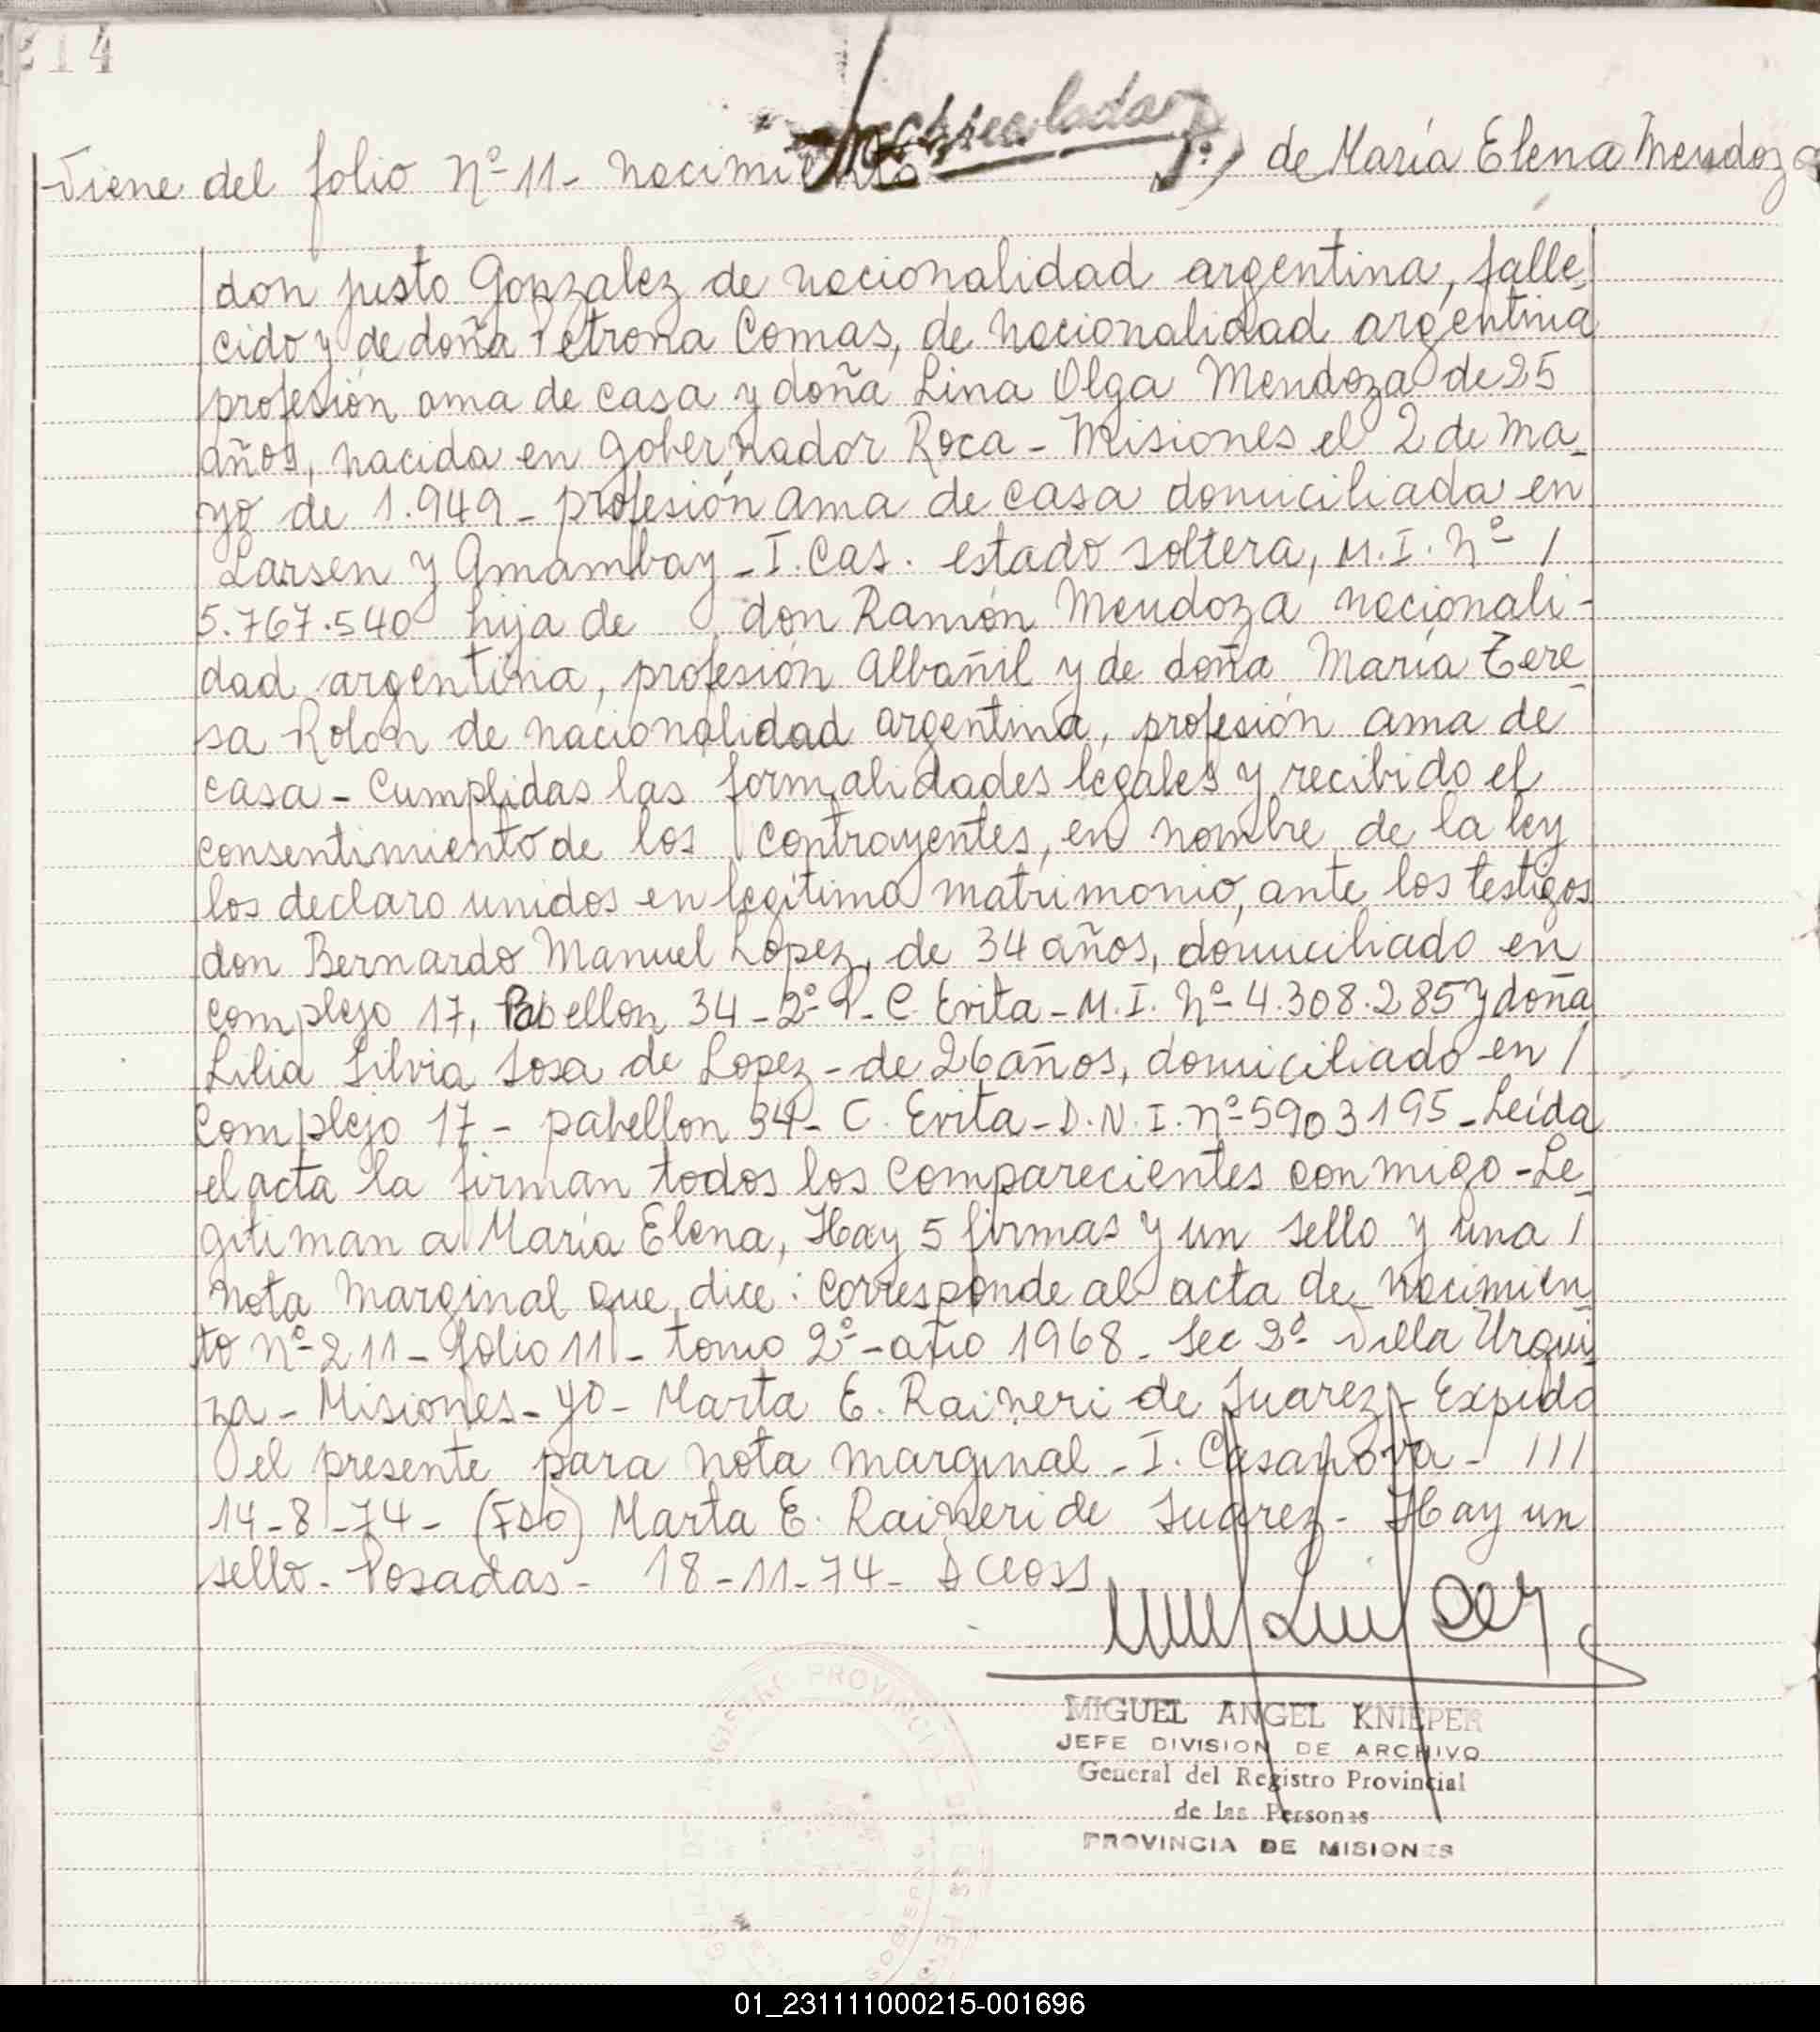 214
Inmaculada
Viene del folio Nº 11 - nacimiento de María Elena Mendoza
don Justo Gonzalez de nacionalidad argentina, falle-
cido y de doña Petrona Comas, de nacionalidad argentina
profesión ama de casa y doña Lina Olga Mendoza de 25
años, nacida en Gobernador Roca - Misiones el 2 de ma-
yo de 1.949 - profesión ama de casa domiciliada en
Larsen y Amambay - I. Cas. estado soltera, M.I. Nº /
5.767.540 hija de don Ramón Mendoza nacionali-
dad argentina, profesión Albañil y de doña María Tere-
sa Rolon de nacionalidad argentina, profesión ama de
casa - Cumplidas las formalidades legales y recibido el
consentimiento de los contrayentes, en nombre de la ley
los declaro unidos en legítimo matrimonio, ante los testigos
don Bernardo Manuel Lopez, de 34 años, domiciliado en
complejo 17, Pabellon 34 - 2º P - C. Evita - M.I. Nº 4.308.285 y doña
Lilia Silvia Sosa de Lopez - de 26 años, domiciliado en /
Complejo 17 - pabellon 34 - C. Evita - D.N.I. nº 5903195 - Leída
el acta la firman todos los comparecientes conmigo - Le-
gitiman a María Elena, Hay 5 firmas y un sello y una /
nota marginal que dice: Corresponde al acta de nacimien-
to Nº 211 - folio 11 - tomo 2º - año 1968 - Sec 2ª Villa Urqui-
za - Misiones - yo - Marta E. Raineri de Suarez - Expido
el presente para nota marginal - I. Casanova - ///
14-8-74 - (Fdo) Marta E. Raineri de Suarez - Hay un
sello - Posadas - 18-11-74 -
MIGUEL ANGEL KNIEPER
JEFE DIVISION DE ARCHIVO
General del Registro Provincial
de las Personas
PROVINCIA DE MISIONES
01_231111000215-001696